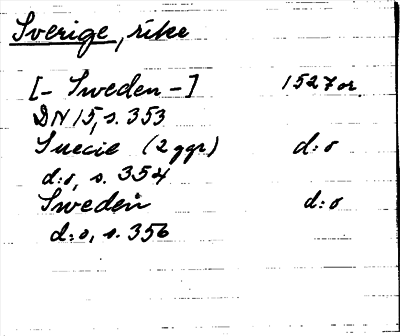 Sverige, rike
[- Sweden -] 1527 or.
DN 15, s. 353
Suecie (2 ggr) d:o
d:o, s. 354
Sweden d:o
d:o, s. 356